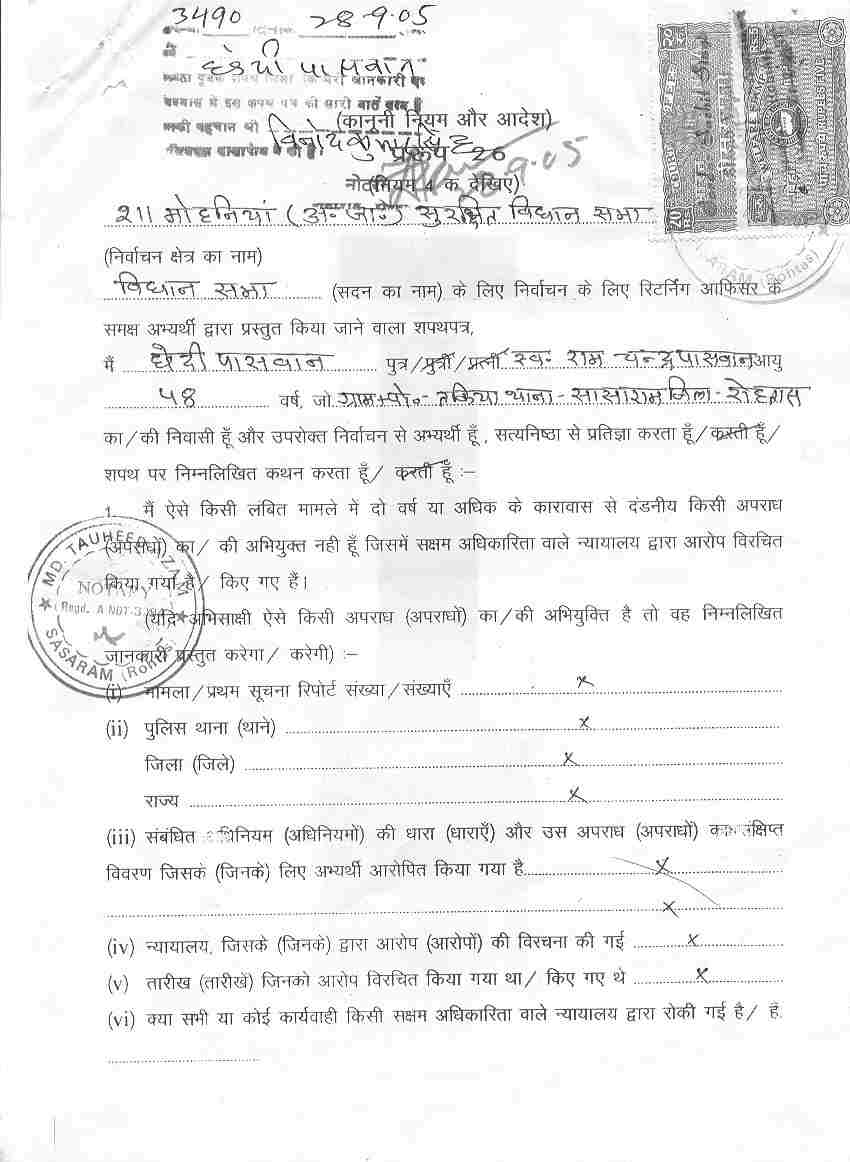 3490 28-9-05
छेदी पासवान
जानकारी
में इस शपथ पत्र की सारी बातें सत्य है
पहचान श्री
(कानूनी नियम और आदेश)
विनोद कुमार सिंह
प्ररूप 26
9.05
(नियम 4 क देखिए)
211 मोहनियां (अ॰ जा॰) सुरक्षित विधान सभा
(निर्वाचन क्षेत्र का नाम)
ARAM (Rohtas)
विधान सभा (सदन का नाम) के लिए निर्वाचन के लिए रिटर्निंग आफिसर के
समक्ष अभ्यर्थी द्वारा प्रस्तुत किया जाने वाला शपथपत्र,
मैं छेदी पासवान पुत्र/पुत्री/पत्नी स्व॰ राम चन्द्र पासवान आयु
58 वर्ष, जो ग्राम+पो॰- तकिया थाना- सासाराम जिला- रोहतास
का/की निवासी हूँ और उपरोक्त निर्वाचन से अभ्यर्थी हूँ, सत्यनिष्ठा से प्रतिज्ञा करता हूँ/करती हूँ/
शपथ पर निम्नलिखित कथन करता हूँ/ करती हूँ :–
1. मैं ऐसे किसी लंबित मामले में दो वर्ष या अधिक के कारावास से दंडनीय किसी अपराध
(अपराधों) का/ की अभियुक्त नही हूँ जिसमें सक्षम अधिकारिता वाले न्यायालय द्वारा आरोप विरचित
किया गया है/ किए गए हैं।
MD. TAUHEED AZAM
NOTARY
SASARAM (Rohtas)
(यदि अभिसाक्षी ऐसे किसी अपराध (अपराधों) का/की अभियुक्ति है तो वह निम्नलिखित
जानकारी प्रस्तुत करेगा/ करेगी) :–
(i) मामला/प्रथम सूचना रिपोर्ट संख्या/संख्याएँ x
(ii) पुलिस थाना (थाने) x
जिला (जिले) x
राज्य x
(iii) संबंधित अधिनियम (अधिनियमों) की धारा (धाराएँ) और उस अपराध (अपराधों) का संक्षिप्त
विवरण जिसके (जिनके) लिए अभ्यर्थी आरोपित किया गया है x
x
(iv) न्यायालय, जिसके (जिनके) द्वारा आरोप (आरोपों) की विरचना की गई x
(v) तारीख (तारीखें) जिनको आरोप विरचित किया गया था/ किए गए थे x
(vi) क्या सभी या कोई कार्यवाही किसी सक्षम अधिकारिता वाले न्यायालय द्वारा रोकी गई है/ हैं.